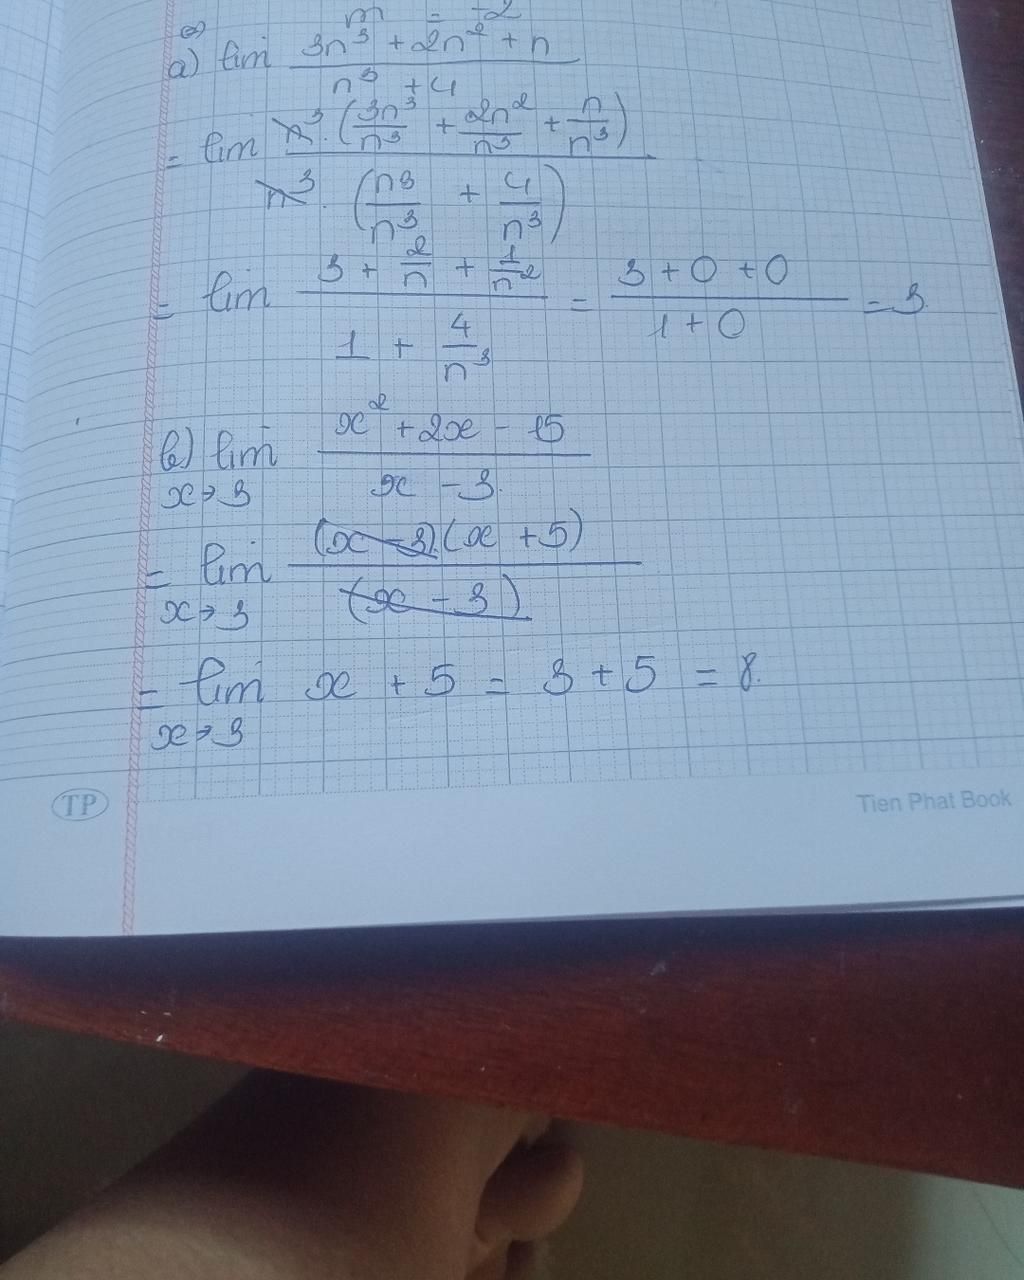 m = -2
a) lim (3n³ + 2n² + n)/(n³ + 4)
= lim n³.(3n³/n³ + 2n²/n³ + n/n³)/n³.(n³/n³ + 4/n³)
= lim (3 + 2/n + 1/n²)/(1 + 4/n³) = (3 + 0 + 0)/(1 + 0) = 3.
b) lim x→3 (x² + 2x - 15)/(x - 3)
= lim x→3 (x - 3).(x + 5)/(x - 3)
= lim x→3 x + 5 = 3 + 5 = 8.
TP
Tien Phat Book